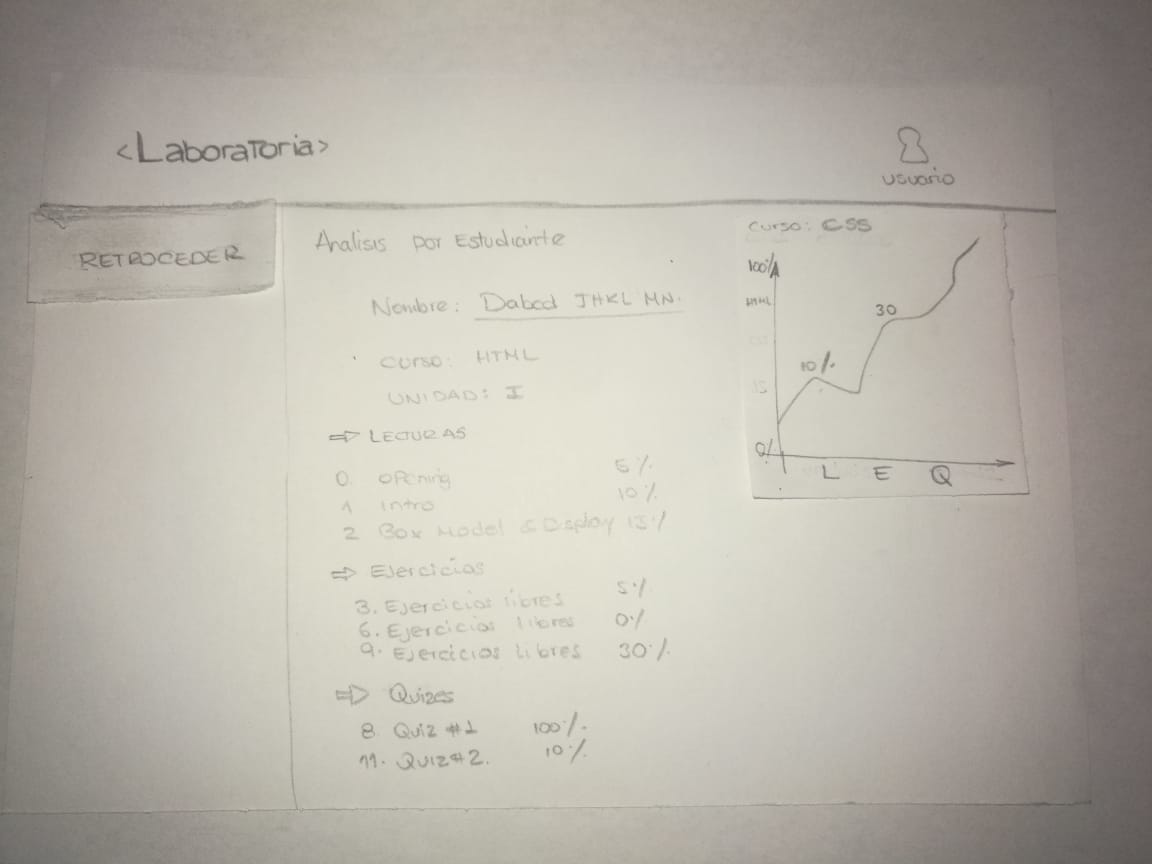 <Laboratoria>
usuario
RETROCEDER
Analisis por Estudiante
Nombre: Dabcd JHKL MN.
Curso: HTML
UNIDAD: I
⇒ LECTURAS
0. opening 5%
1 intro 10%
2 Box Model & Display 15%
⇒ Ejercicios
3. Ejercicios libres 5%
6. Ejercicios libres 0%
9. Ejercicios Libres 30%
⇒ Quizes
8. Quiz #1 100%.
11. Quiz #2. 10%.
Curso: CSS
100%
HTML
30
10%.
JS
0%
L E Q